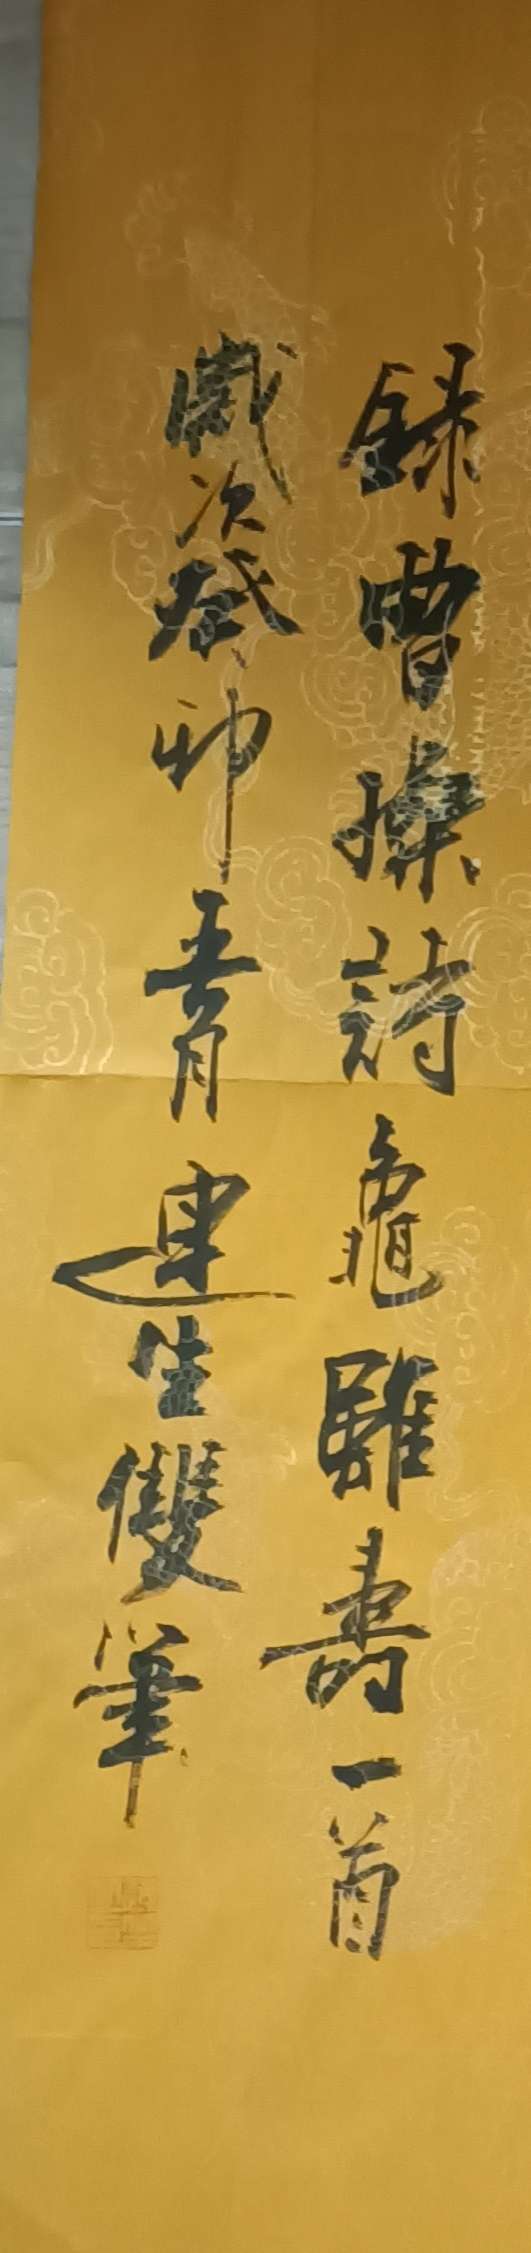 錄曹操詩龜雖壽一首
歲次癸卯青建生雙筆